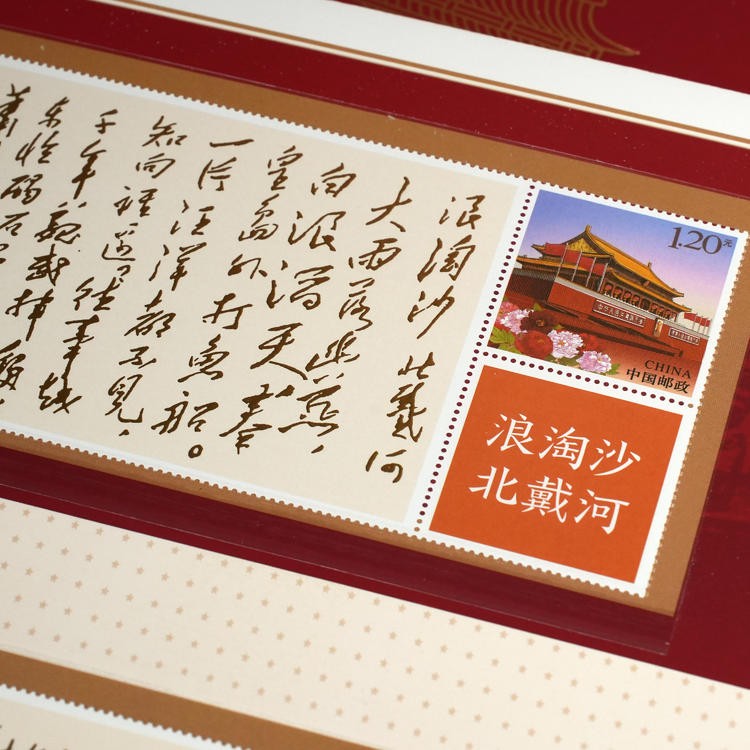 浪淘沙 北戴河
大雨落幽燕，
白浪滔天秦
皇島外打魚船。
一片汪洋都不見，
知向誰邊往事越
千年魏武揮鞭
東臨碣石
1.20元
CHINA
中国邮政
浪淘沙
北戴河